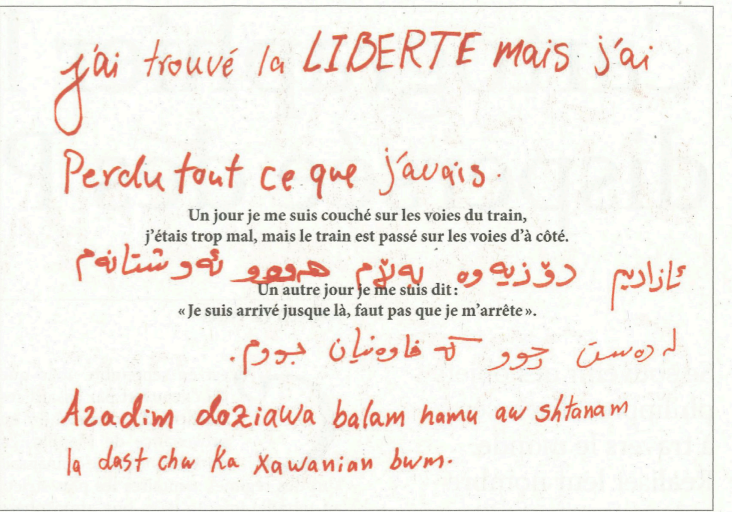 j'ai trouvé la LIBERTE mais j'ai
Perdu tout ce que j'avais.
Un jour je me suis couché sur les voies du train,
j'étais trop mal, mais le train est passé sur les voies d'à côté.
ئازادیم دۆزیەوە بەڵام هەموو ئەو شتانەم
Un autre jour je me suis dit :
« Je suis arrivé jusque là, faut pas que je m'arrête ».
لە دەست چوو کە خاوەنیان بووم.
Azadim doziawa balam hamu aw shtanam
la dast chw Ka xawanian bwm.